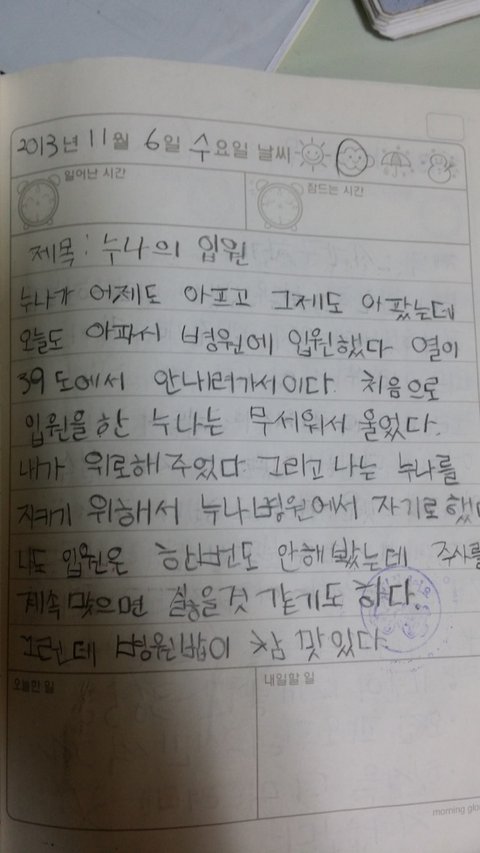 2013년 11월 6일 수요일 날씨
일어난 시간 잠드는 시간
제목: 누나의 입원
누나가 어제도 아프고 그제도 아팠는데
오늘도 아파서 병원에 입원했다 열이
39도에서 안내려가서이다. 처음으로
입원을 한 누나는 무서워서 울었다.
내가 위로해 주었다 그리고 나는 누나를
지키기 위해서 누나병원에서 자기로 했다
나도 입원은 한번도 안해봤는데 주사를
계속 맞으면 싫을것 같기도 하다.
그런데 병원밥이 참 맛있다
오늘한 일 내일할 일
morning glo